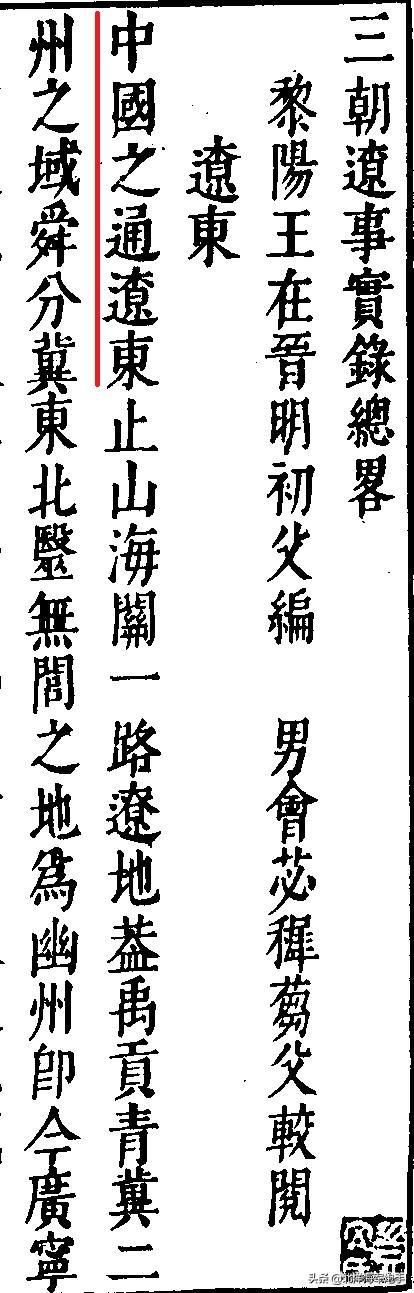 三朝遼事實錄總畧
黎陽王在晉明初父編 男會苾穉蒭父較閱
遼東
中國之通遼東止山海關一路遼地葢禹貢青冀二
州之域舜分冀東北毉無閭之地爲幽州卽今廣寧